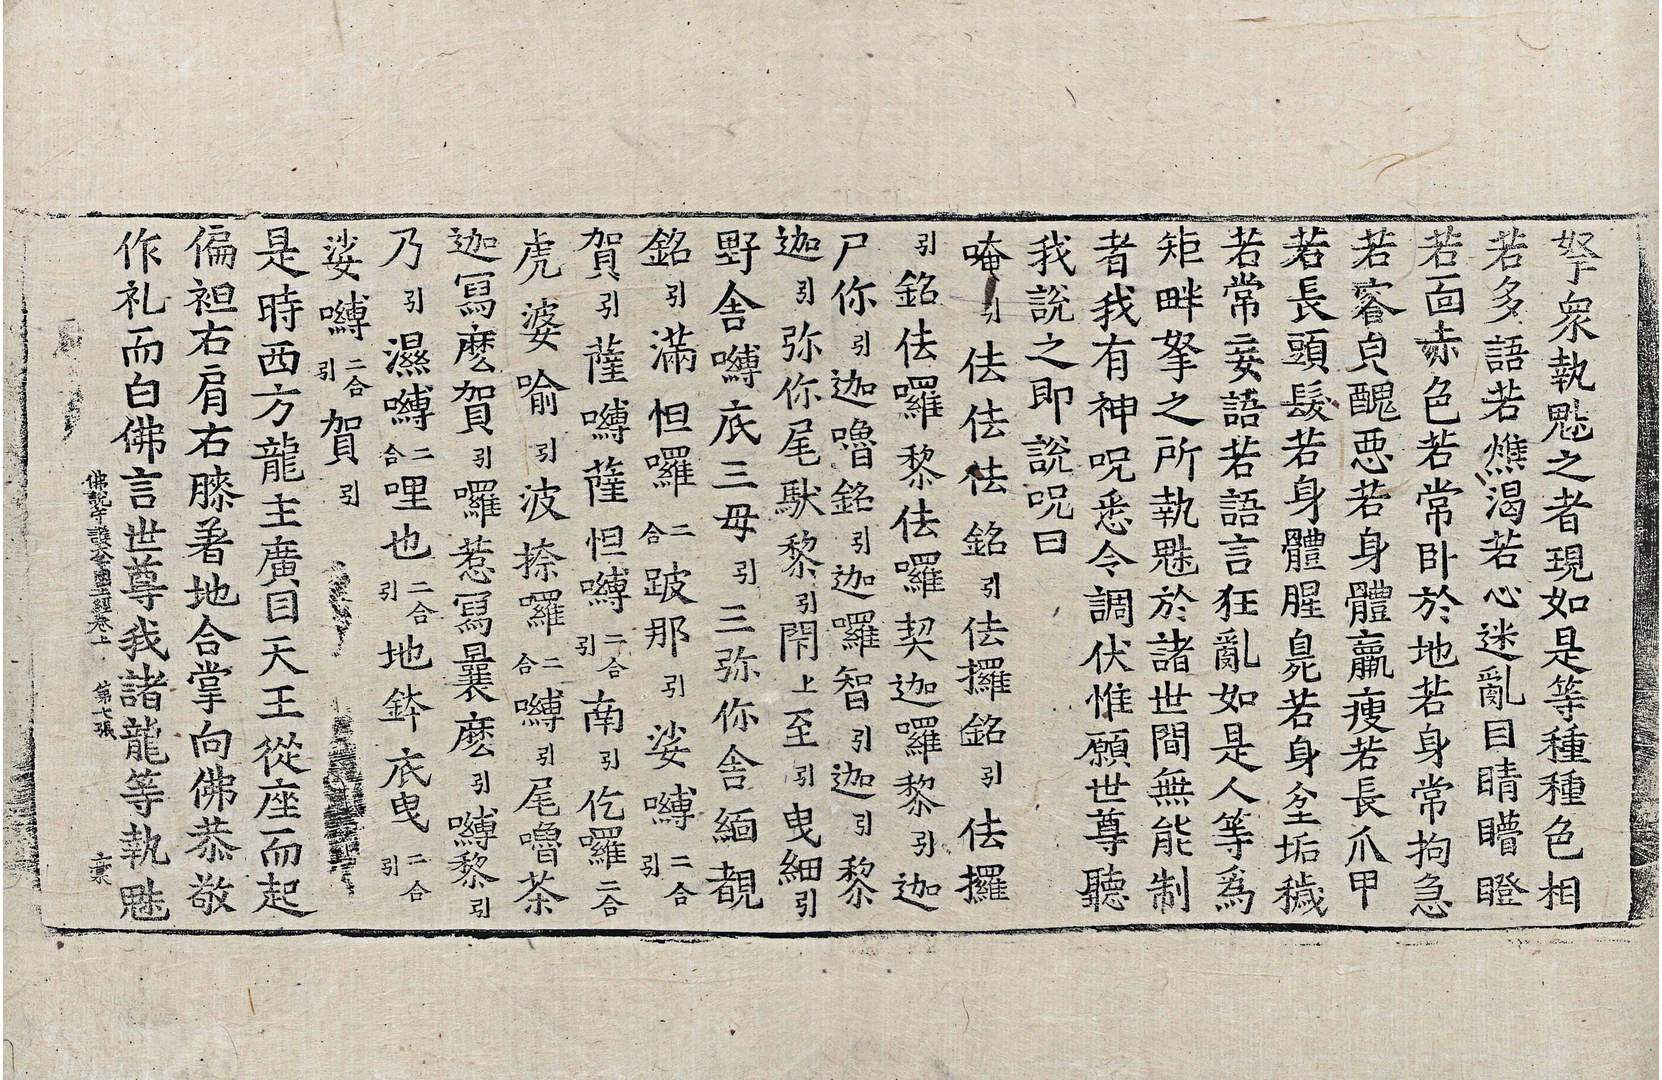 拏衆執魅之者現如是等種種色相
若多語若燋渴若心迷亂目睛矒瞪
若面赤色若常卧於地若身常拘急
若容皃醜悪若身體羸瘦若長爪甲
若長頭髮若身體腥臭若身坌垢穢
若常妄語若語言狂亂如是人等爲
矩畔拏之所執魅於諸世間無能制
者我有神呪悉令調伏惟願世尊聽
我說之即說呪曰
唵引佉佉佉銘引佉攞銘引佉攞
引銘佉囉黎佉囉契迦囉黎引迦
尸你引迦嚕銘引迦囉智引迦引黎
迦引弥你尾馱黎引閇上至引曳細引
野舍嚩底三毋引三弥你舍緬覩
銘引滿怛囉二合跛那引娑嚩二合引
賀引薩嚩薩怛嚩二合引南引仡囉二合
虎婆喻引波捺囉二合嚩引尾嚕茶
迦寫麽賀引囉惹寫曩麽引嚩黎引
乃引濕嚩二合哩也二合引地鉢底曳二合引
娑嚩二合引賀引
是時西方龍主廣目天王從座而起
偏袒右肩右膝著地合掌向佛恭敬
作礼而白佛言世尊我諸龍等執魅
佛說守護大千國土經卷上 第七張